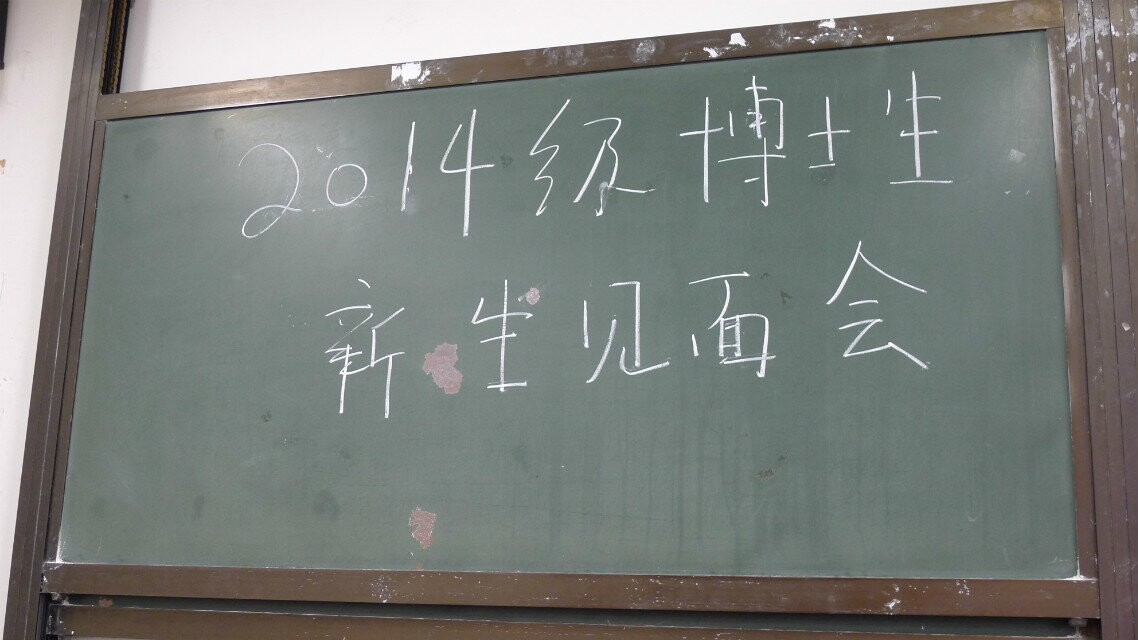 2014级博士生
新生见面会